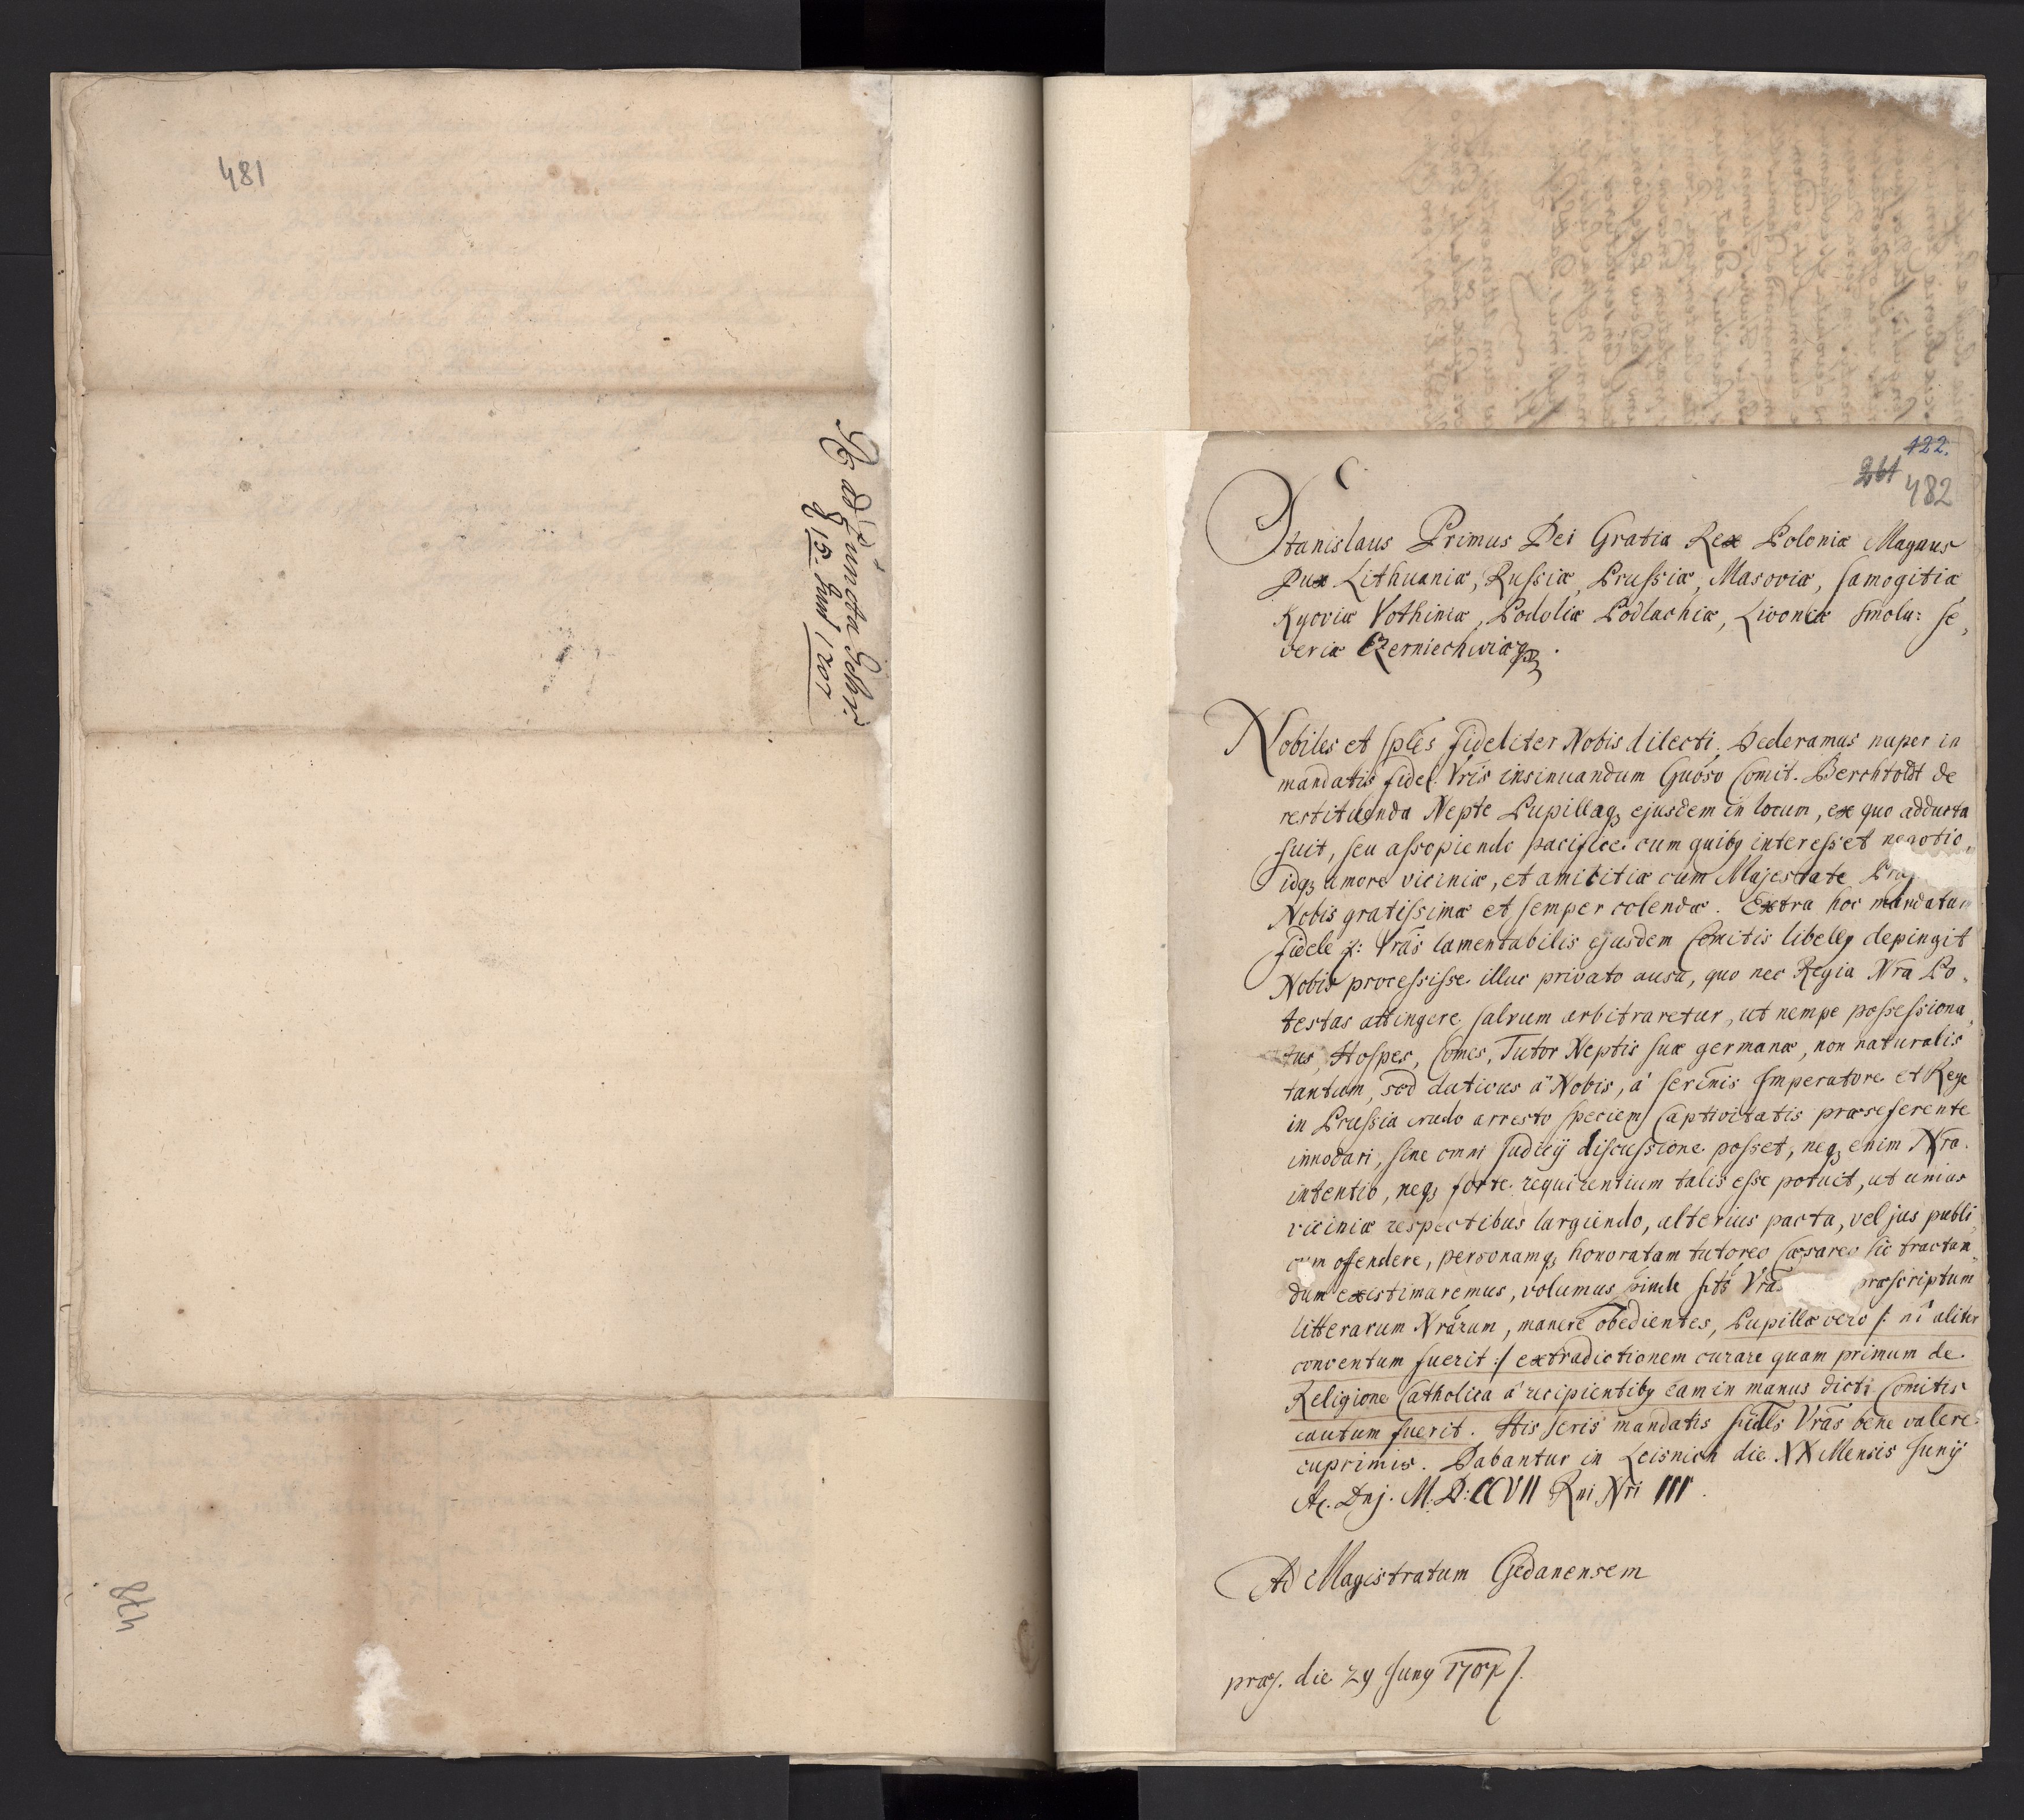 481
ad Puncta
d 15. Junÿ 1707
478
122.
261 482
Stanislaus Primus Dei Gratia Rex Poloniæ Magnus
Dux Lithuaniæ, Russiæ, Prussiæ, Masoviæ, Samogitiæ
Kyoviæ Volhiniæ, Podoliæ Podlachiæ, Livoniæ Smoln: Se,
veriæ Czerniechoviæq
Nobiles et Sples fideliter Nobis dilecti. Dederamus nuper in
mandatis fidel. Vris insinuandum Guoso Comit. Berchtoldt de
restituenda Nepte Pupillaq ejusdem in locum, ex quo adducta
fuit, seu assopiendo pacifice cum quibq interesset negotio,
idq amore viciniæ, et amicitiæ cum Majestate
Nobis gratissimæ et semper colendæ. Extra hoc mandatum
fidele Vras lamentabilis ejusdem Comitis libellq depingit
Nobis processisse illuc privato ausu, quo nec Regia Nra Po,
testas attingere salvum arbitraretur, ut nempe possessiona
tus, Hospes, Comes, Tutor Neptis suæ germanæ, non naturalis
tantum, sed dativus a Nobis, a Serinis Imperatore et Rege
in Prussia nudo arresto speciem Captivitatis præseferente
innodari, sine omni Judicÿ discussione posset, neq enim Nra
intentio, neq forte requirentium talis esse potuit, ut unius
viciniæ respectibus largiendo, alterius pacta, vel jus publi,
cum offendere, personamq honoratam tutoreo Cæsareo sic tractan,
dum existimaremus, volumus Vras præscriptum
litterarum Nrarum, manere obedientes, Pupillæ vero /: ni aliter
conventum fuerit :/ extradictionem curare quam primum de
Religione Catholica a recipientibq eam in manus dicti Comitis
cautum fuerit. His seris mandatis fidls Vras bene valere
cuprimis. Dabantur in Leisnich die XX Mensis Junÿ
Ac. Dnj. M: D: CCVII Rni Nri III.
Ad Magistratum Gedanensem
præs. die 29 Juny 1707 /.